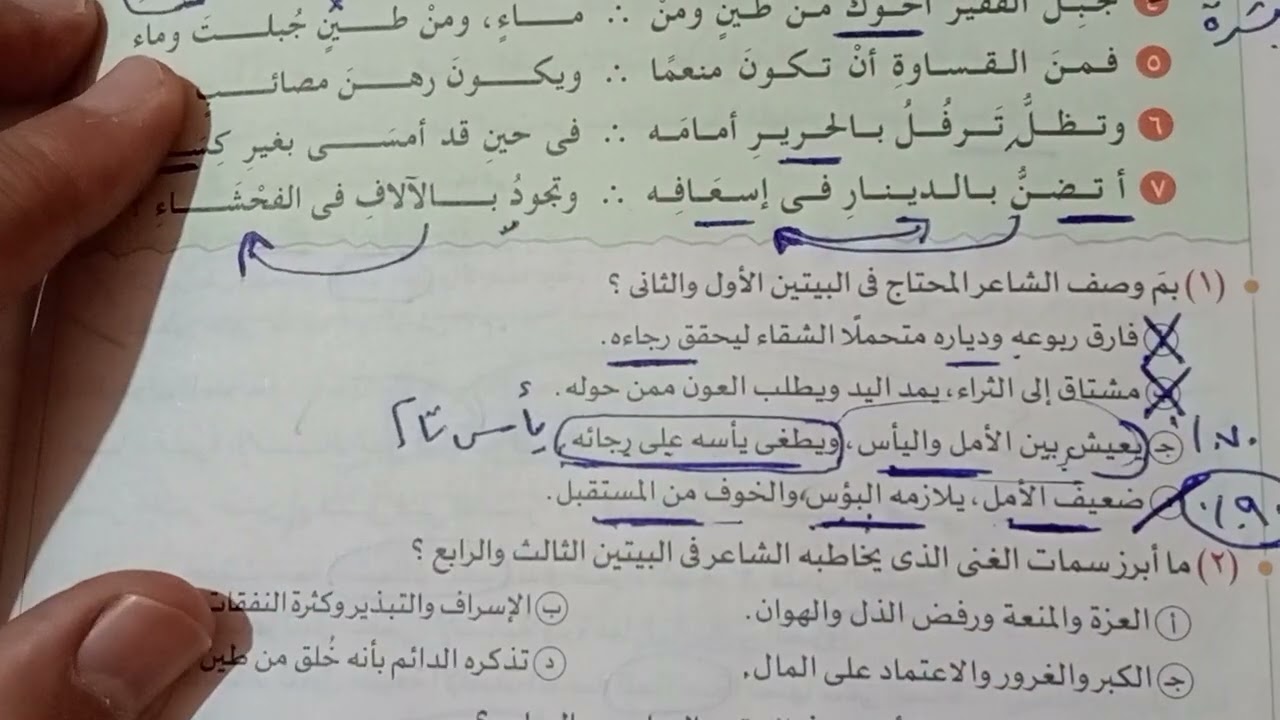 جُبِلَ الفقير أخوك من طينٍ ومنْ ∴ مـاءٍ، ومنْ طـينٍ جُبلـتَ وماء
٥ فـمـنَ الـقـسـاوةِ أنْ تـكـونَ منعمًا ∴ ويكـونَ رهـنَ مصائـبٍ
٦ وتـظـلُّ تَرفُـلُ بـالحـريـرِ أمامَـه ∴ فى حينِ قد أمسَـى بغيرِ كِسَـ
٧ أتـضـنُّ بـالـديـنـارِ فـى إسعَافِـه ∴ وتجودُ بـالآلافِ فى الفحْشَـاءِ ؟
(١) بمَ وصف الشاعر المحتاج فى البيتين الأول والثانى ؟
فارق ربوعه ودياره متحملًا الشقاء ليحقق رجاءه.
مشتاق إلى الثراء، يمد اليد ويطلب العون ممن حوله.
جـ يعيش بين الأمل واليأس، ويطغى يأسه على رجائه. يأس تام
ضعيف الأمل، يلازمه البؤس، والخوف من المستقبل.
(٢) ما أبرز سمات الغنى الذى يخاطبه الشاعر فى البيتين الثالث والرابع ؟
أ العزة والمنعة ورفض الذل والهوان. ب الإسراف والتبذير وكثرة النفقات
جـ الكبر والغرور والاعتماد على المال. د تذكره الدائم بأنه خُلق من طين